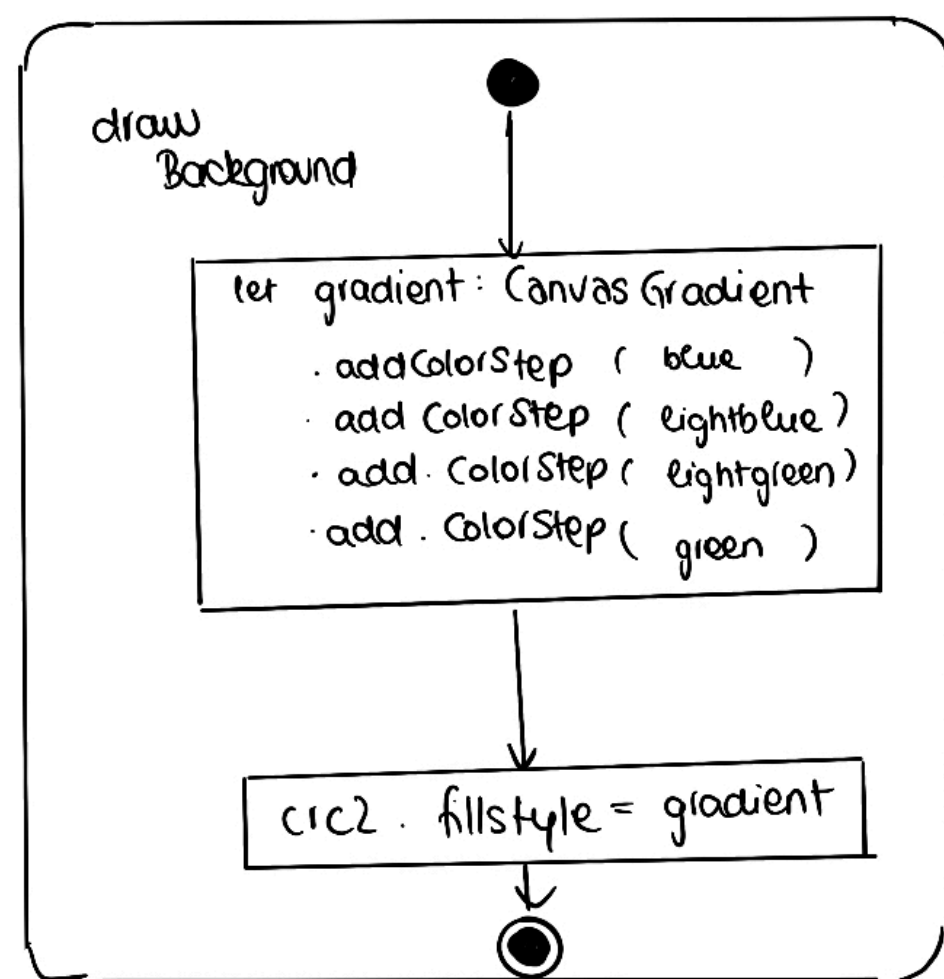 draw
Background
let gradient: CanvasGradient
. addColorStep ( blue )
. add ColorStep ( lightblue )
. add. ColorStep ( lightgreen )
. add . ColorStep ( green )
crc2 . fillstyle = gradient